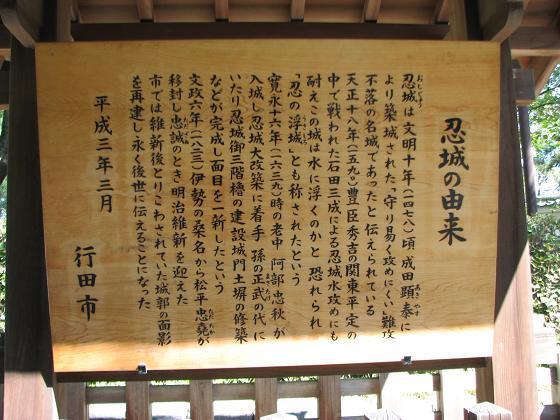 忍城の由来
忍城は文明十年(一四七八)頃 成田顕泰に
より築城された「守り易く攻めにくい難攻
不落の名城であったと伝えられている
天正十八年(一五九〇)豊臣秀吉の関東平定の
中で戦われた石田三成による忍城水攻めにも
耐えこの城は水に浮くのかと 恐れられ
「忍の浮城」とも称されたという
寛永十六年(一六三九)時の老中 阿部忠秋が
入城し忍城大改築に着手 孫の正武の代に
いたり忍城御三階櫓の建設城門土塀の修築
などが完成し面目を一新したという
文政六年(一八二三)伊勢の桑名から松平忠堯が
移封し忠誠のとき明治維新を迎えた
市では維新後とりこわされていた城郭の面影
を再建し永く後世に伝えることになった
平成三年三月
行田市